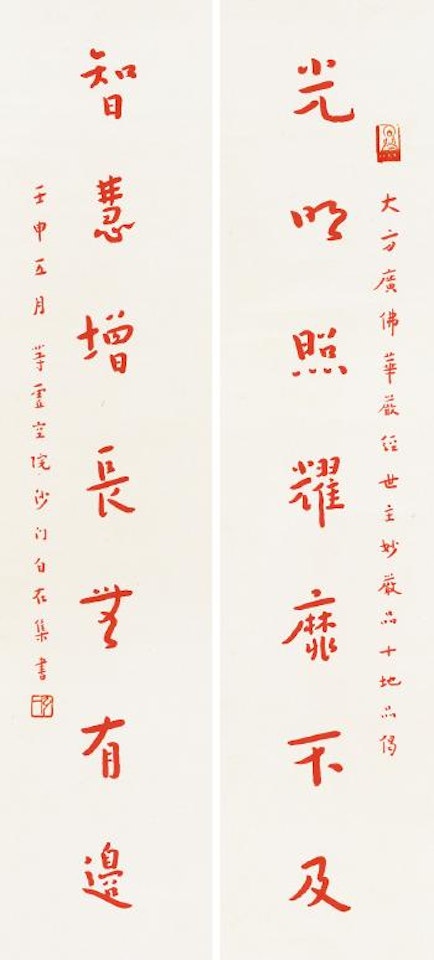 大方廣佛華嚴經世主妙嚴品十地品偈
光明照耀靡不及
智慧增長無有邊
壬申五月 等虛空院沙门自在集書